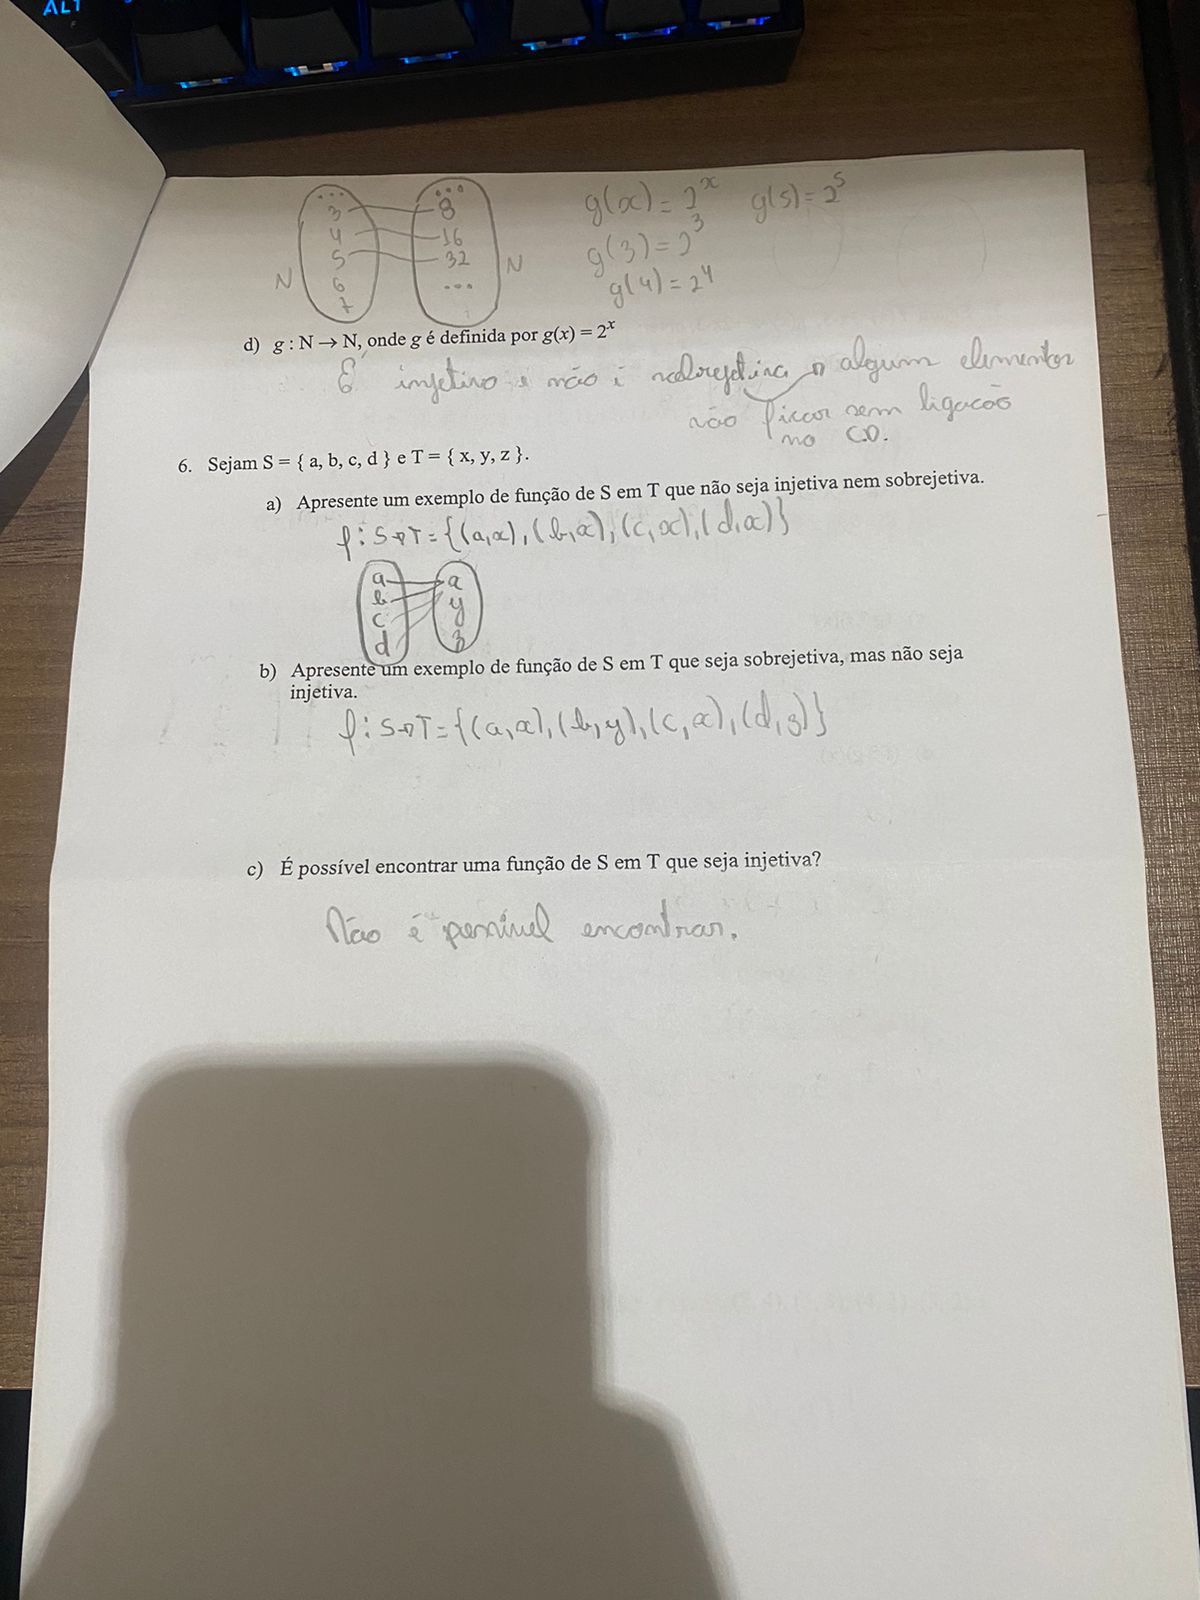 ALT
... ...
3 8
4 16
5 32
N 6 ... N
7
g(x) = 2^x g(5) = 2^5
g(3) = 2^3
g(4) = 2^4
d) g : N → N, onde g é definida por g(x) = 2^x
É injetiva e não é algum elementos
não ficar sem ligação
no C.D.
6. Sejam S = { a, b, c, d } e T = { x, y, z }.
a) Apresente um exemplo de função de S em T que não seja injetiva nem sobrejetiva.
f: S→T = {(a,x), (b,x), (c,x), (d,x)}
a x
b y
c z
d
b) Apresente um exemplo de função de S em T que seja sobrejetiva, mas não seja
injetiva.
f: S→T = {(a,x), (b,y), (c,x), (d,z)}
c) É possível encontrar uma função de S em T que seja injetiva?
Não é possível encontrar.